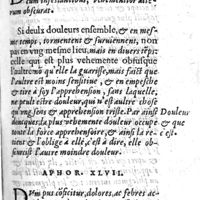 rum obscurat.
Si deulx douleurs ensemble, & en mes-
me temps, tormentent & suruiennent, non
pas en vng mesme lieu, mais en diuers :
celle qui est plus vehemente obfusque
l'aultre, non qu'elle la guerisse, mais faict que
l'aultre est moins sensitiue, & en empesche
& tire à soy l'apprehension, sans laquelle,
ne peult estre douleur, qui n'est aultre chose
qu'vng sens & apprehension triste. Par ainsi
doncques, la plus vehemente douleur occupe
toute la force apprehensoire, & ainsi la re-
tire & l'oblige à elle, & est à dire, elle ob-
scurcist l'autre moindre douleur.
Douleur
& que
c'est.
APHOR. XLVII.
Dum pus cõficitur, dolores, ac febres ac-